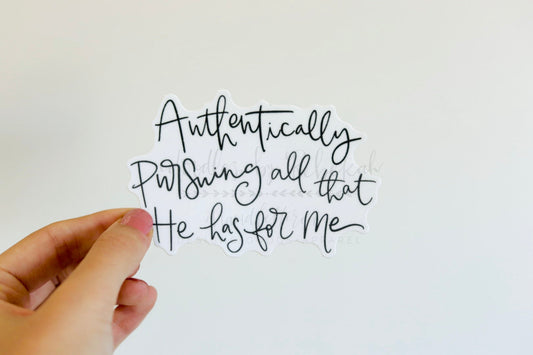 Authentically
Pursuing all that
He has for Me